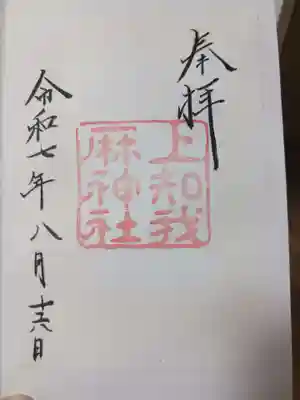 奉拝
上知我
麻神社
令和七年八月十六日